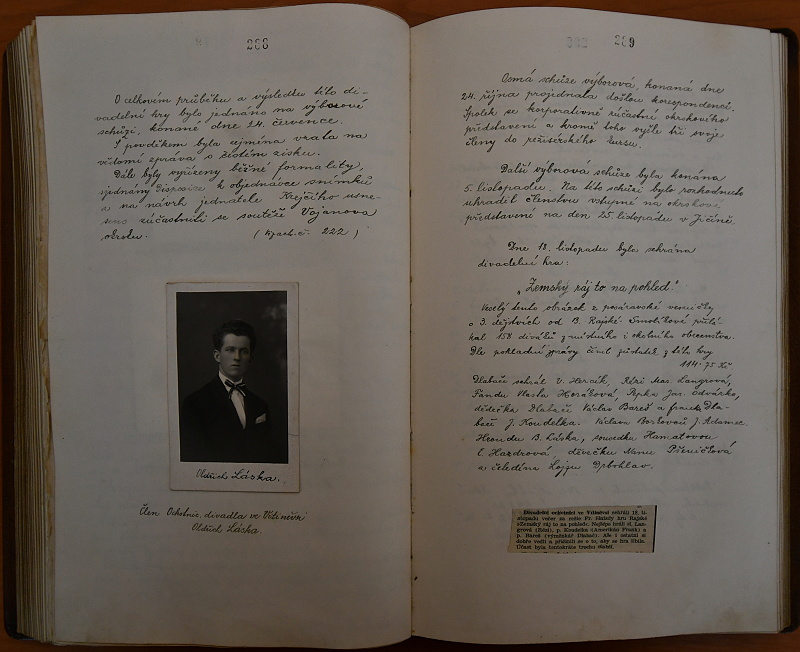 288
O celkovém průběhu a výsledku této di-
vadelní hry bylo jednáno na výborové
schůzi, konané dne 24. července.
S povděkem byla zejména vzata na
vědomí zpráva o čistém zisku.
Dále byly vyřízeny běžné formality,
jednány Disposice k objednávce snímků
a na návrh jednatele Krejčího usne-
seno zúčastniti se soutěže Vojanova
okrsku. (kjach.č. 222)
Oldřich Láska.
Člen Ochotnic. divadla ve Vitiněvsi
Oldřich Láska.
289
Osmá schůze výborová, konaná dne
24. října projednala došlou korespondenci.
Spolek se korporativně zúčastní okrskového
představení a kromě toho vyšle tři svoje
členy do režisérského kursu.
Další výborová schůze byla konána
5. listopadu. Na této schůzi bylo rozhodnuto
uhraditi členstvu vstupné na okrskové
představení na den 25 listopadu v Jičíně.
Dne 18. listopadu byla sehrána
divadelní hra:
„Zemský ráj to na pohled."
Veselý tento obrázek z posázavské vesničky
o 3. dějstvích od B. Rajské-Smolíkové přilá-
kal 158 diváků z místního i okolního obecenstva.
Dle pokladní zprávy činil zůstatek z této hry
114.75 Kč
Dlabače sehrál V. Hercík, Rézi Mar. Langrová,
Fandu Vlasta Horáková, Pepka Jar. Odvárko,
dědečka Dlabače Václav Bareš a franka Dla-
bače J. Koudelka. Václava Borkovců J. Adamec
Hrondu B. Láska, sousedku Hamatovou
L Hazdrová děvečku Nanu Pšeničková
a čeledína Lojzu Drbohlav.
Divadelní ochotníci ve Vitiněvsi sehráli 18. li-
stopadu večer za režie Fr. Huňáty hru Rajské
»Zemský ráj to na pohled«. Nejlépe hráli sl. Lan-
grová (Rézi), p. Koudelka (Američan Frank) a
p. Bareš (výměnkář Dlabač). Ale i ostatní si
dobře vedli a přičinili se o to, aby se hra líbila.
Účast byla tentokráte trochu slabší.